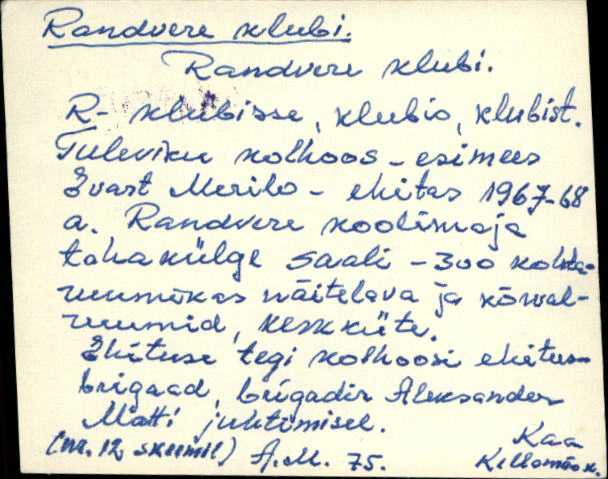 Randvere klubi.
Randvere klubi.
R- klubisse, klubis, klubist.
Tuleviku kolhoos - esimees
Evart Merilo - ehitas 1967-68
a. Randvere koolimaja
taha külge saali - 300 kohta-
ruumikas näitelava ja kõrval-
ruumid, keskküte.
Ehituse tegi kolhoosi ehitus-
brigaad, brigadir Aleksander
Mätti juhtimisel.
(nr. 12 skeemil) A.M. 75.
Kaa
Kellomäe k.